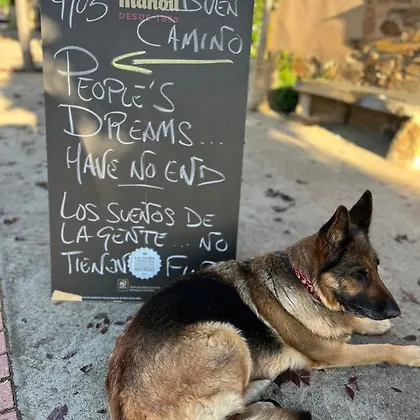 mahou
DESDE 1890
9/05 BUEN
CAMINO
PEOPLE'S
DREAMS...
HAVE NO END
LOS SUEÑOS DE
LA GENTE... NO
TIENEN FI